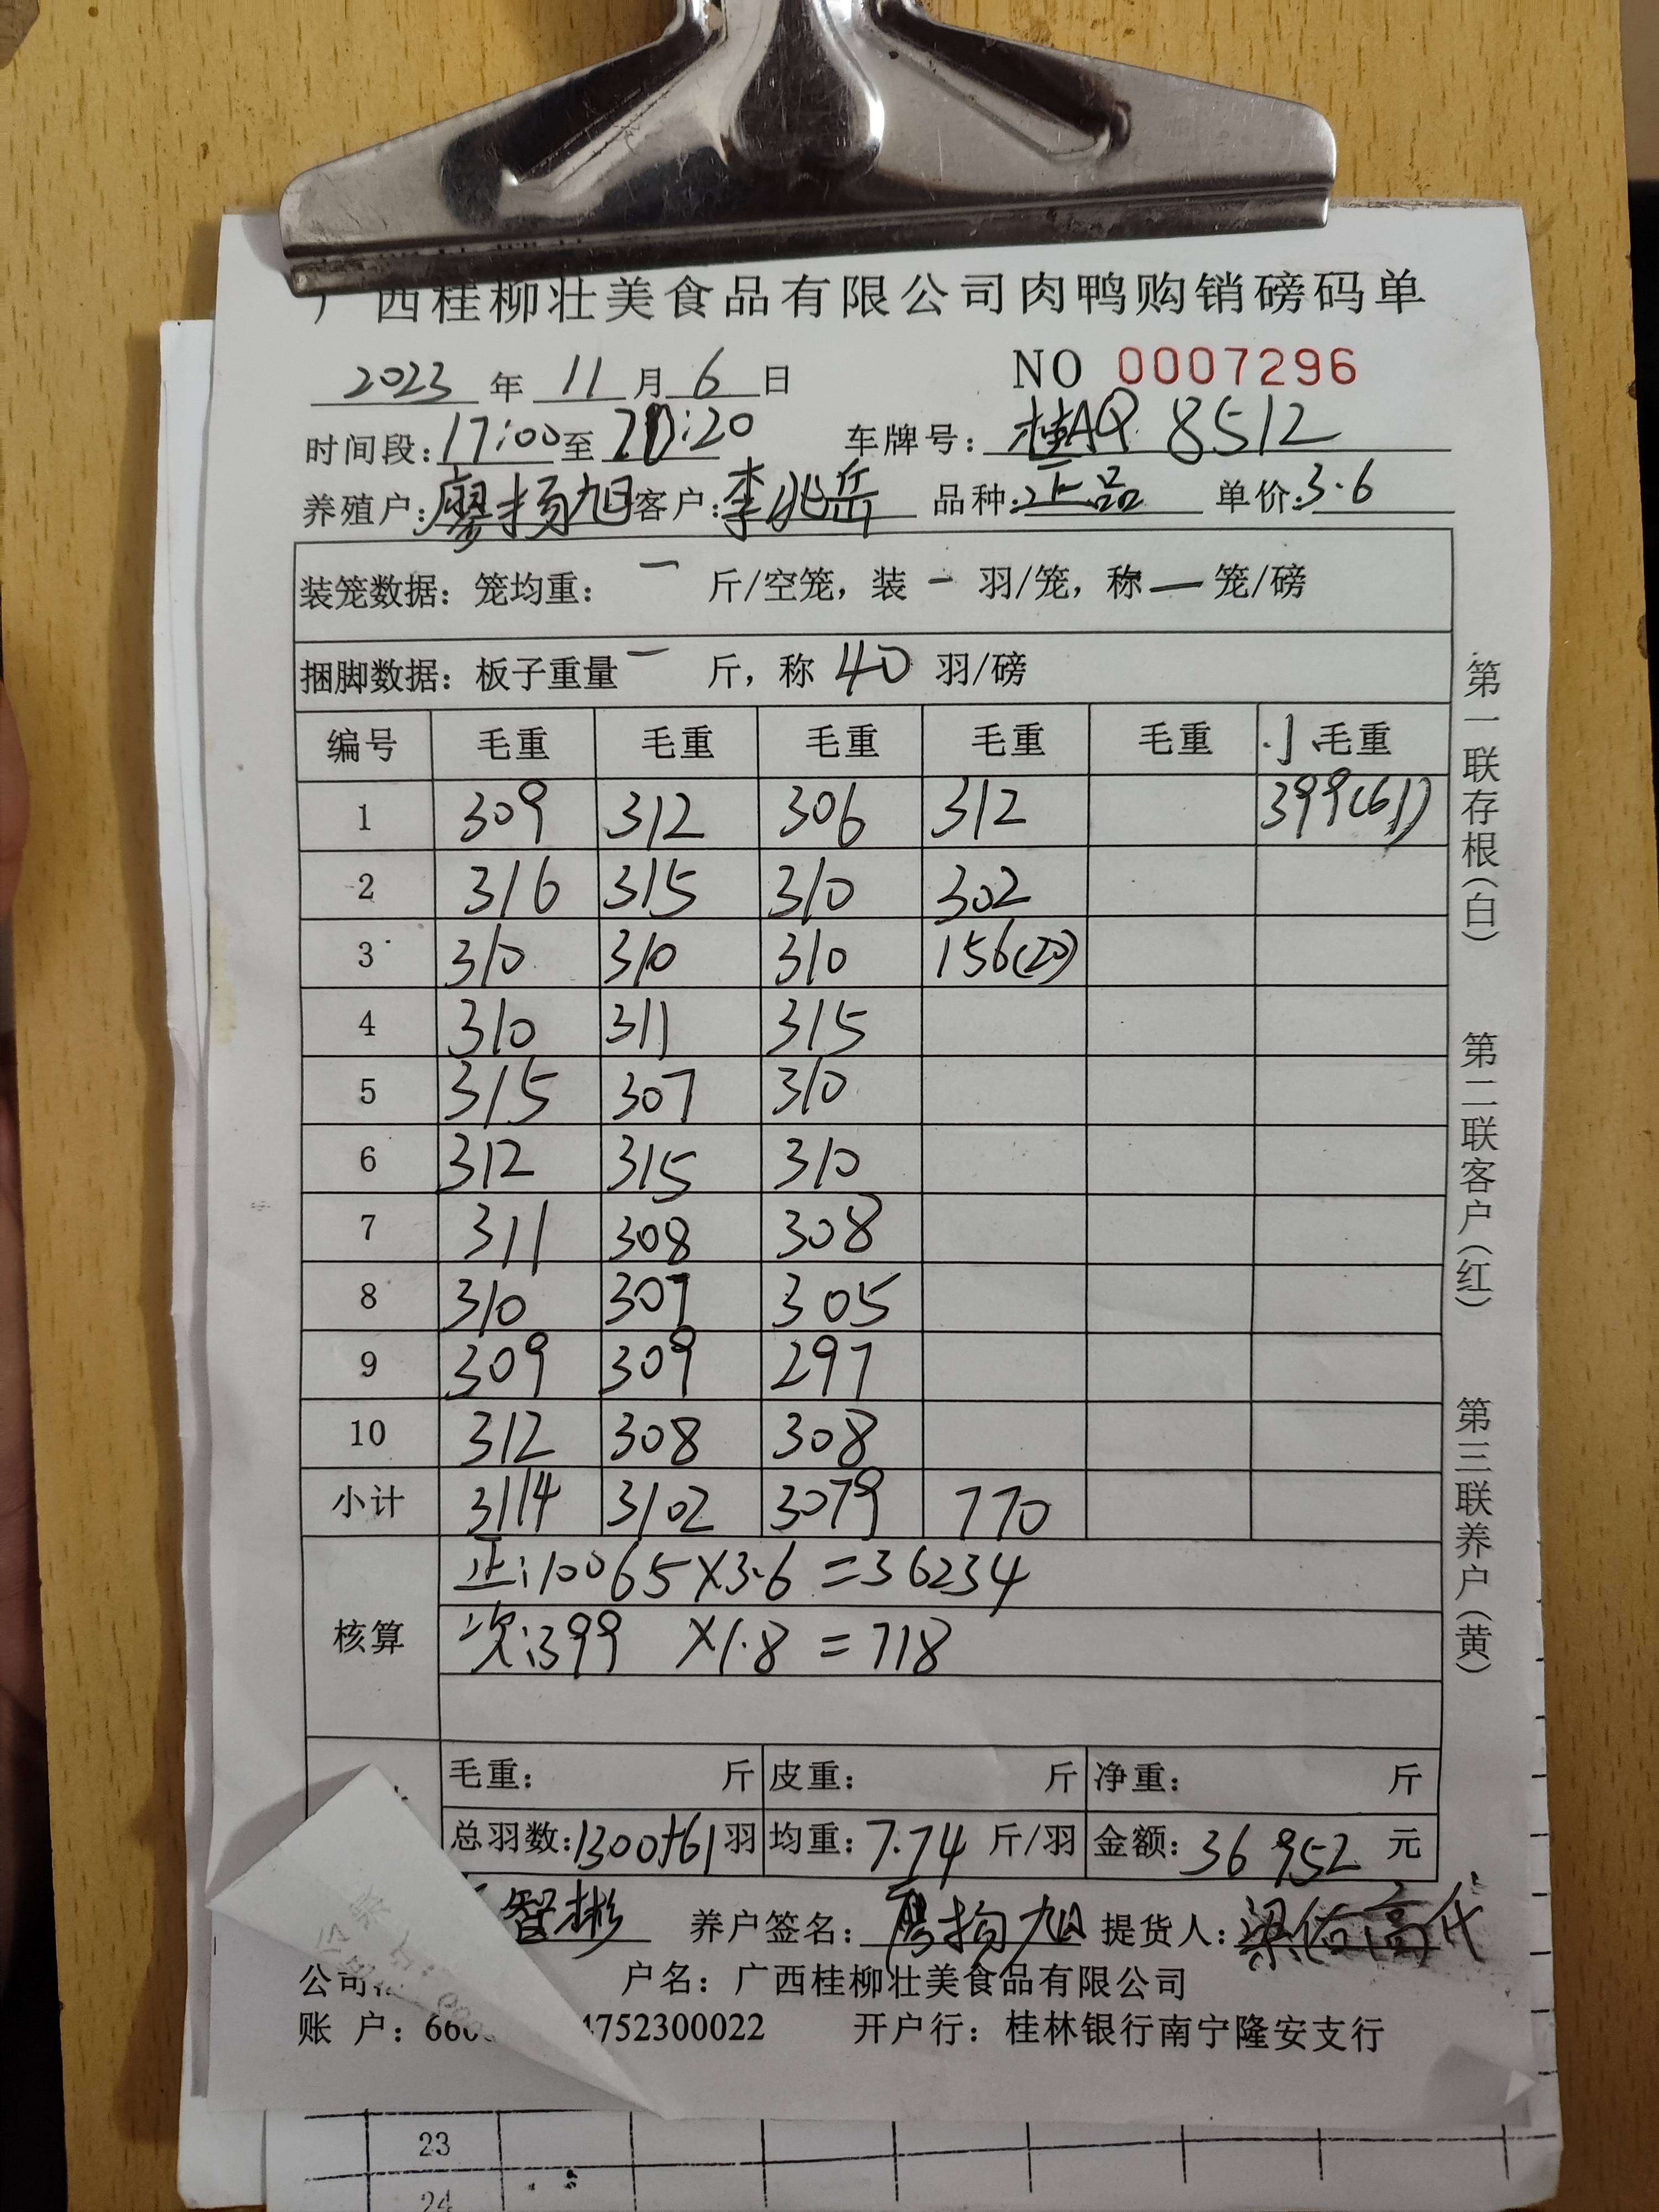 广西桂柳壮美食品有限公司肉鸭购销磅码单
2023 年 11 月 6 日 NO 0007296
时间段: 17:00 至 :20 车牌号: 桂AQ 8512
养殖户: 廖扬旭 客户: 李兆岳 品种: 正品 单价: 3.6
装笼数据: 笼均重: — 斤/空笼, 装 — 羽/笼, 称 — 笼/磅
捆脚数据: 板子重量 — 斤, 称 40 羽/磅
编号 毛重 毛重 毛重 毛重 毛重 小毛重
1 309 312 306 312 399(61)
2 316 315 310 302
3 310 310 310 156(20)
4 310 311 315
5 315 307 310
6 312 315 310
7 311 308 308
8 310 307 305
9 309 309 297
10 312 308 308
小计 3114 3102 3079 770
核算 正:10065×3.6=36234
次:399 ×1.8=718
毛重: 斤 皮重: 斤 净重: 斤
总羽数: 1300+61 羽 均重: 7.74 斤/羽 金额: 36952 元
智彬 养户签名: 廖扬旭 提货人: 梁佑高代
公司 户名: 广西桂柳壮美食品有限公司
账 户: 660 4752300022 开户行: 桂林银行南宁隆安支行
第一联存根(白) 第二联客户(红) 第三联养户(黄)
23
24